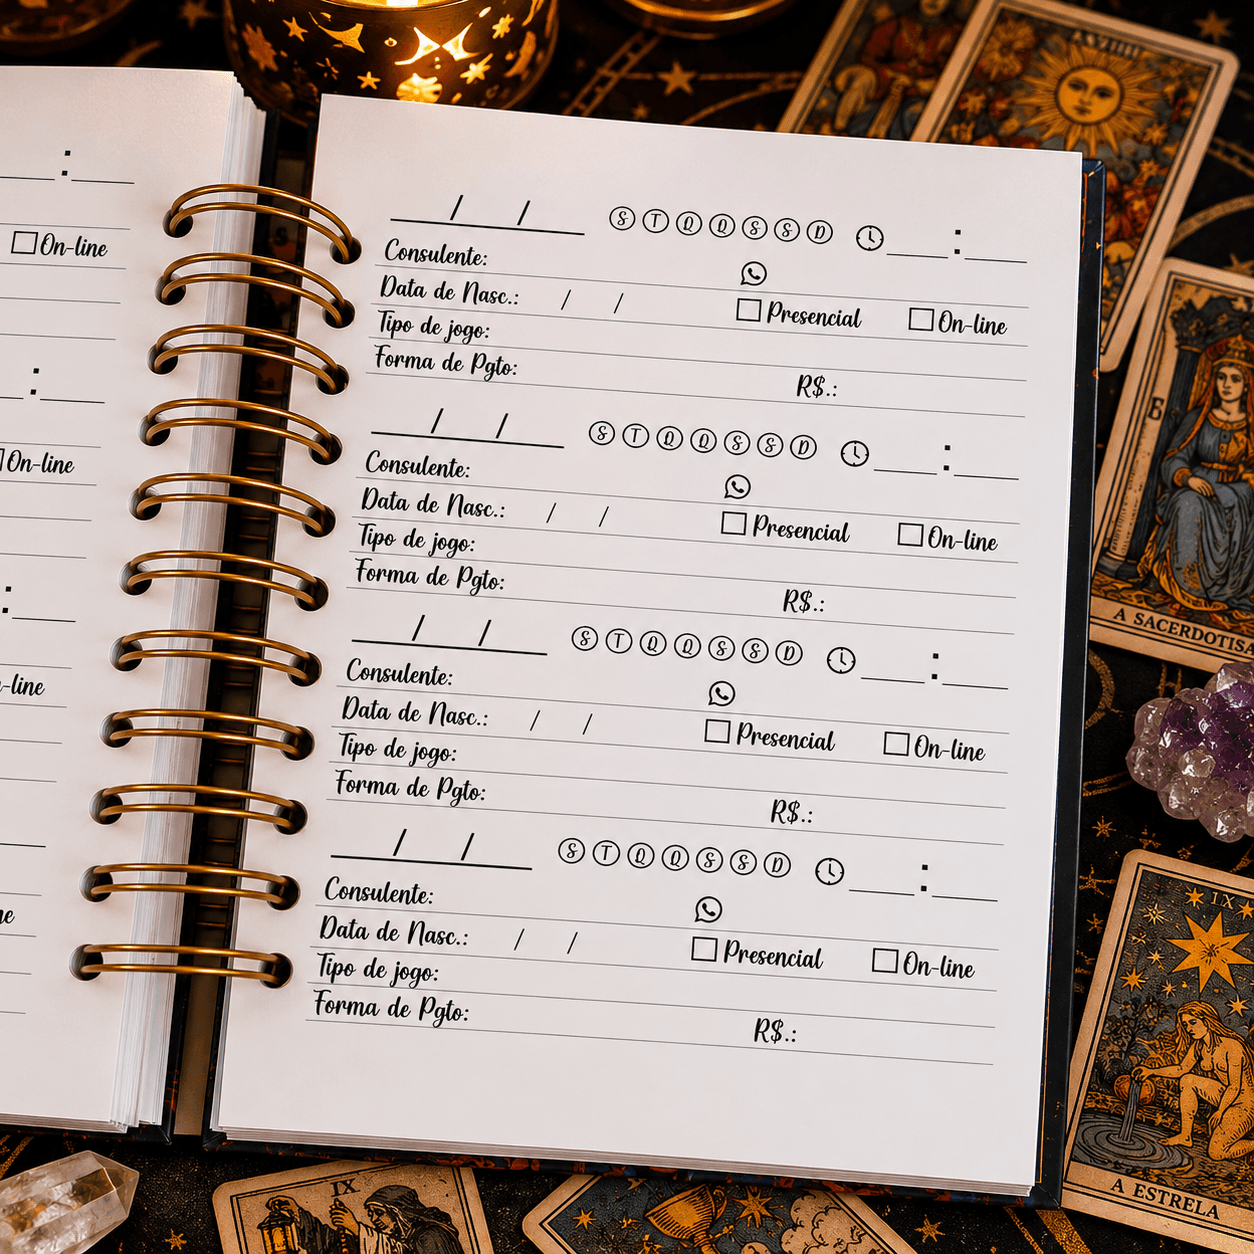 :
On-line
:
On-line
:
-line
ne
/ / S T Q Q S S D :
Consulente:
Data de Nasc.: / / Presencial On-line
Tipo de jogo:
Forma de Pgto: R$.:
/ / S T Q Q S S D :
Consulente:
Data de Nasc.: / / Presencial On-line
Tipo de jogo:
Forma de Pgto: R$.:
/ / S T Q Q S S D :
Consulente:
Data de Nasc.: / / Presencial On-line
Tipo de jogo:
Forma de Pgto: R$.:
/ / S T Q Q S S D :
Consulente:
Data de Nasc.: / / Presencial On-line
Tipo de jogo:
Forma de Pgto: R$.:
A SACERDOTISA
A ESTRELA
IX